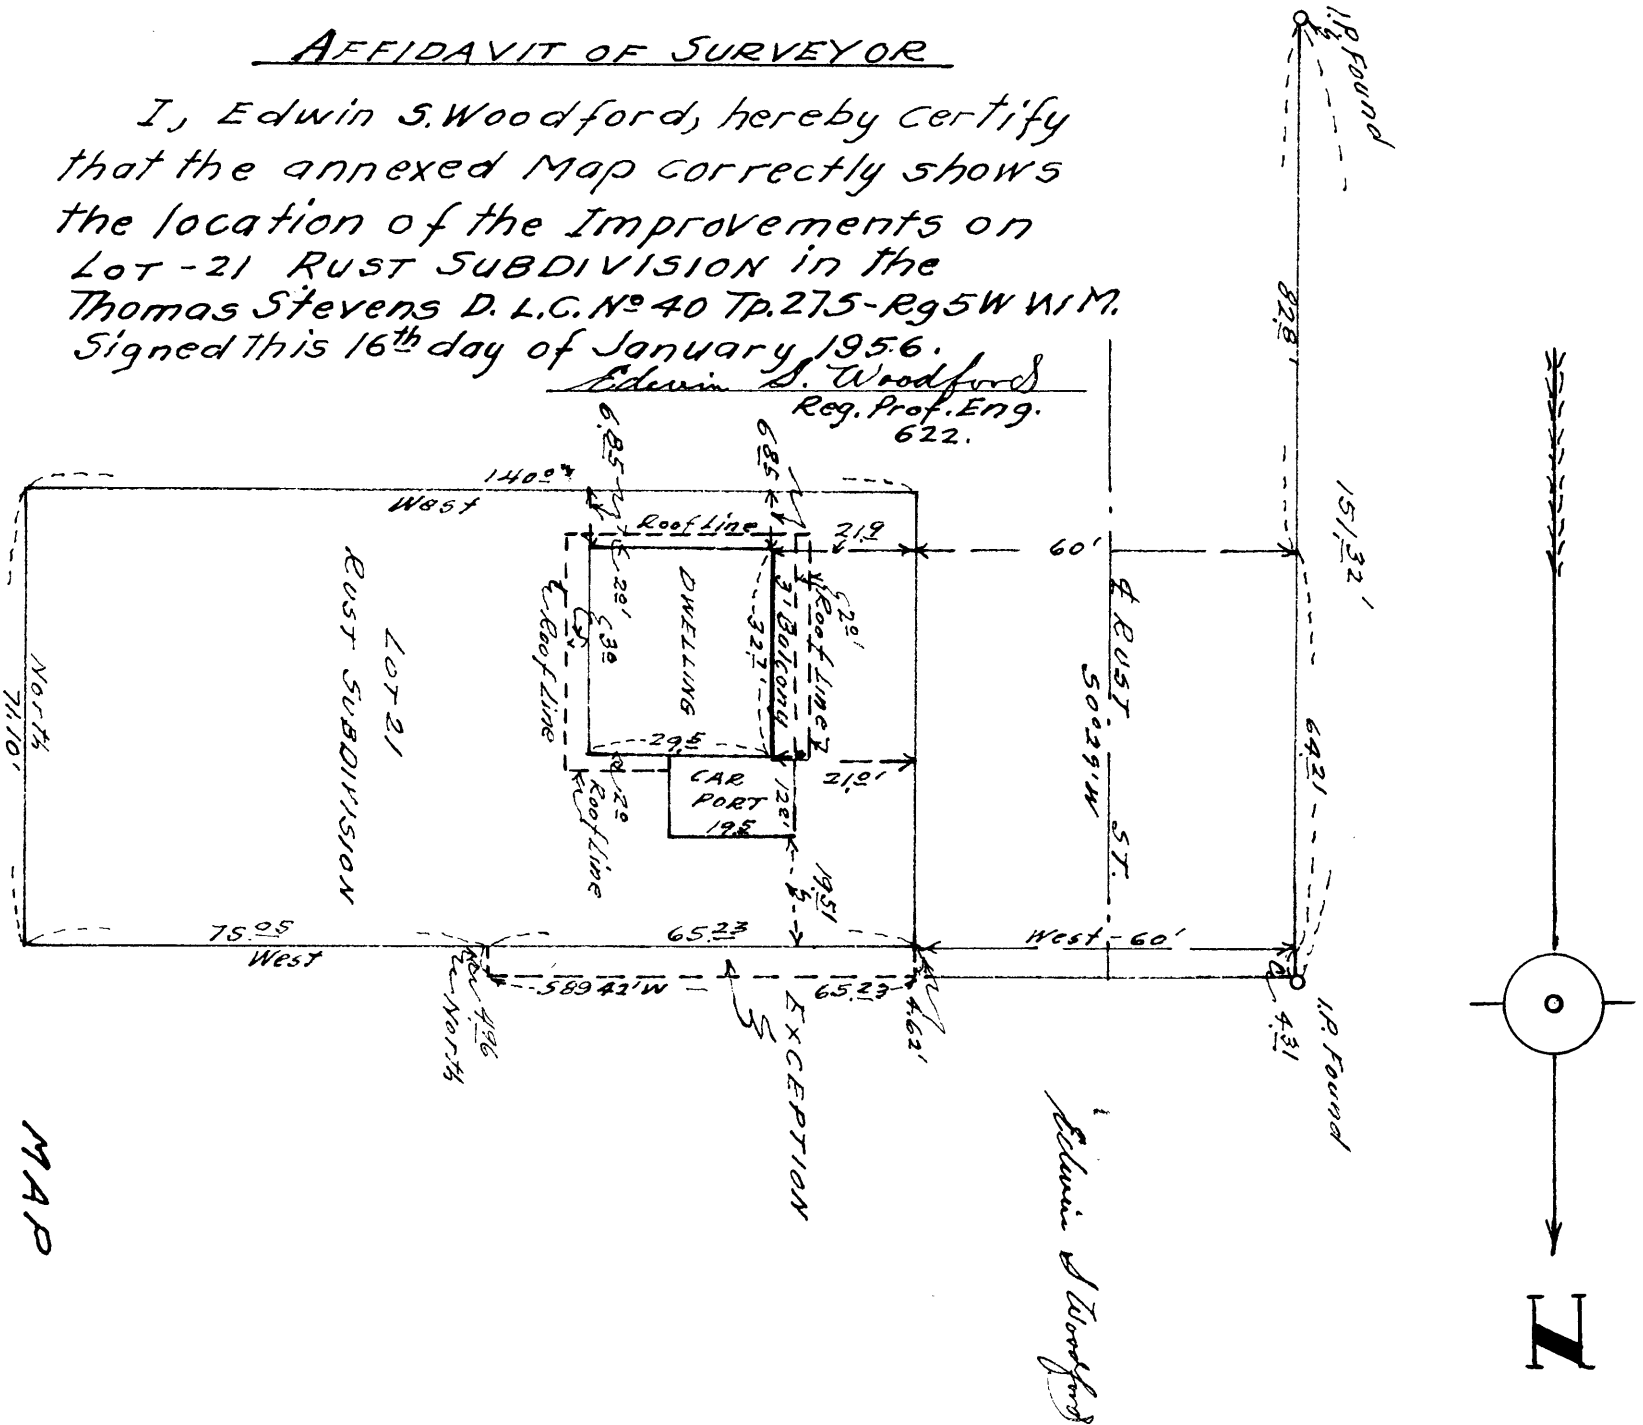 AFFIDAVIT OF SURVEYOR
I, Edwin S. Woodford, hereby certify
that the annexed Map correctly shows
the location of the Improvements on
LOT-21 RUST SUBDIVISION in the
Thomas Stevens D.L.C. Nº 40 Tp.27S-Rg5W W.M.
Signed this 16th day of January 1956.
Edwin S. Woodford
Reg. Prof. Eng.
622.
I.P. Found
82.8'
151.32'
64.21
I.P. Found
4.31
140.00
West
6.85
6.85
Roof Line
21.9
60'
2.0'
3.0
2.0'
Roof Line
Roof Line
3' Balcony
32.7'
DWELLING
29.5
CAR
PORT
19.5
12.0'
21.0'
2.0
Roof Line
19.51
LOT 21
RUST SUBDIVISION
North
71.10'
75.05
West
65.23
West-60'
S 89 42' W
65.23
4.96
North
4.62'
EXCEPTION
℄ RUST ST.
S0°29'W
Edwin S Woodford
MAP
N